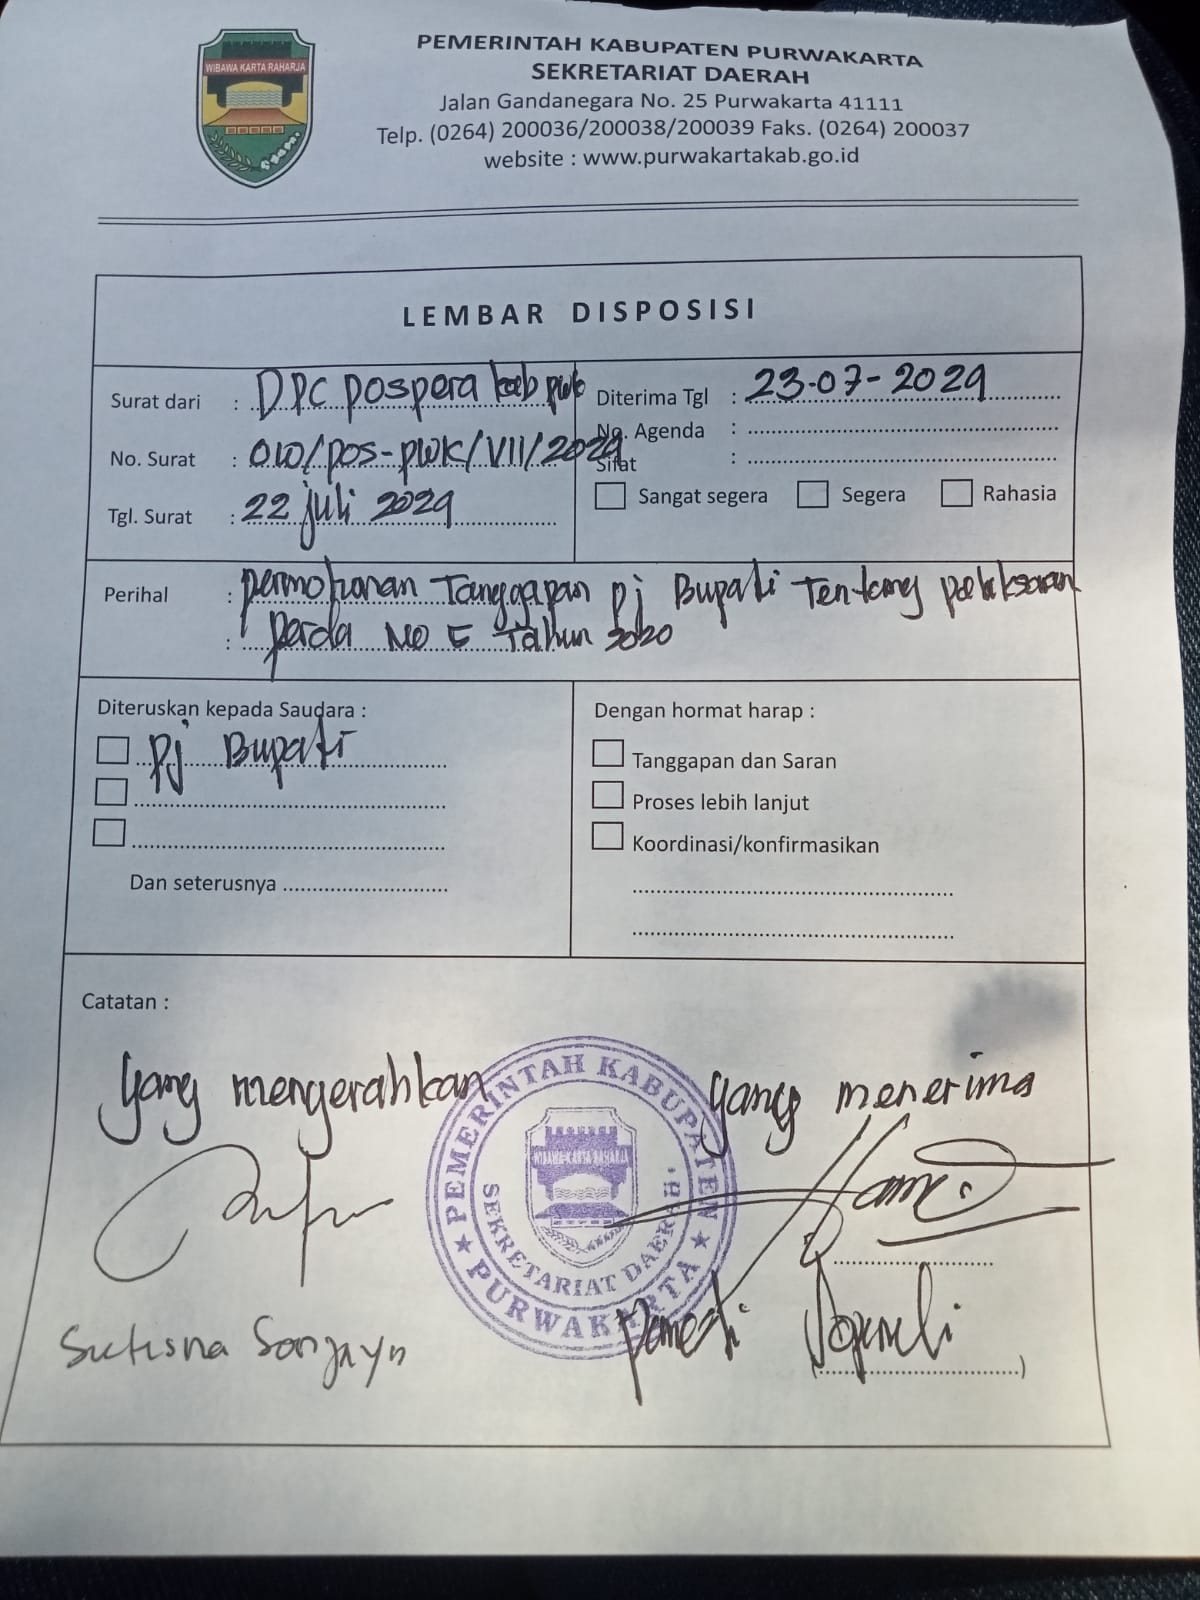 WIBAWA KARTA RAHARJA
PEMERINTAH KABUPATEN PURWAKARTA
SEKRETARIAT DAERAH
Jalan Gandanegara No. 25 Purwakarta 41111
Telp. (0264) 200036/200038/200039 Faks. (0264) 200037
website : www.purwakartakab.go.id
LEMBAR DISPOSISI
Surat dari : DPC pospera kab pwk
No. Surat : 010/pos-pwk/VII/2024
Tgl. Surat : 22 juli 2024
Diterima Tgl : 23-07-2024
No. Agenda :
Sifat :
Sangat segera Segera Rahasia
Perihal : permohonan Tanggapan pj Bupati Tentang pelaksanan
: perda No 5 Tahun 2020
Diteruskan kepada Saudara :
Pj Bupati
Dan seterusnya
Dengan hormat harap :
Tanggapan dan Saran
Proses lebih lanjut
Koordinasi/konfirmasikan
Catatan :
yang mengerahkan
yang menerima
PEMERINTAH KABUPATEN
PURWAKARTA
SEKRETARIAT DAERAH
WIBAWA KARTA RAHARJA
Sutisna Sonjaya